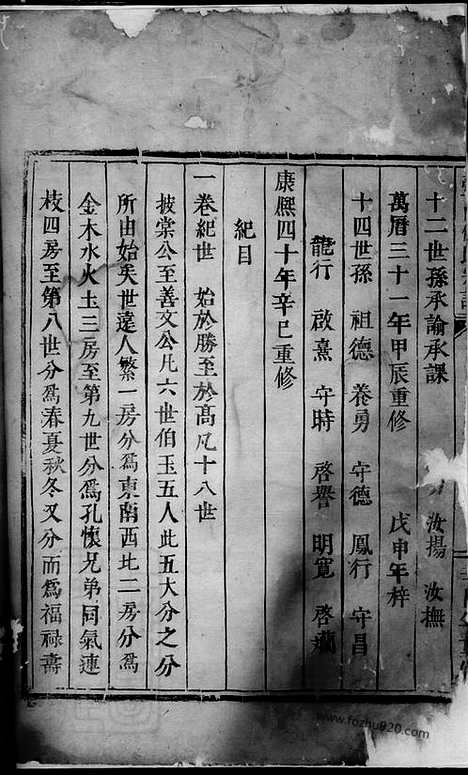 十二世孫承諭承課 汝揚 汝撫
萬曆三十一年甲辰重修 戊申年梓
十四世孫 祖德 養勇 守德 鳳行 守昌
龍行 啟熹 守時 啓譽 明寬 啓
康熙四十年辛巳重修
紀目
一卷紀世 始於勝至於高凡十八世
披棠公至善文公凡六世伯玉五人此五大分之分
所由始矣世遠人繁一房分爲東南西北二房分爲
金木水火土三房至第九世分爲孔懷兄弟同氣連
枝四房至第八世分爲春夏秋冬又分而爲福禄壽
www.fozhu920.com